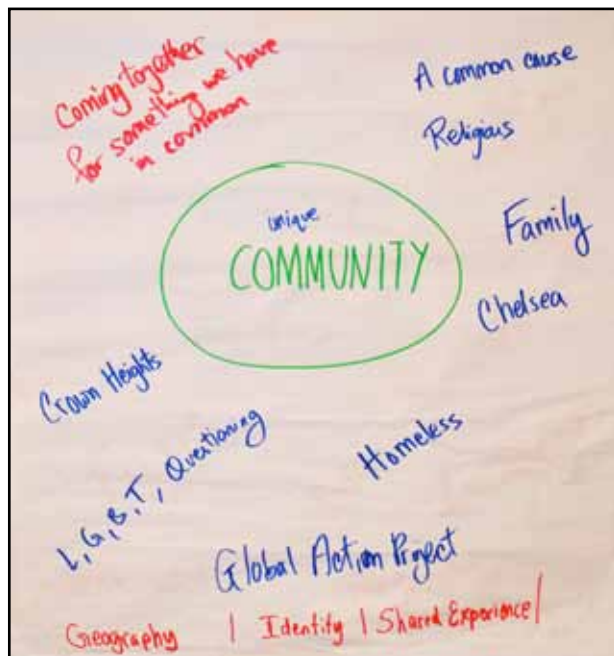 Coming together
for something we have
in common
A common cause
Religious
Family
Chelsea
unique
COMMUNITY
Crown Heights
L, G, B, T, Questioning
Homeless
Global Action Project
Geography | Identity | Shared Experience |